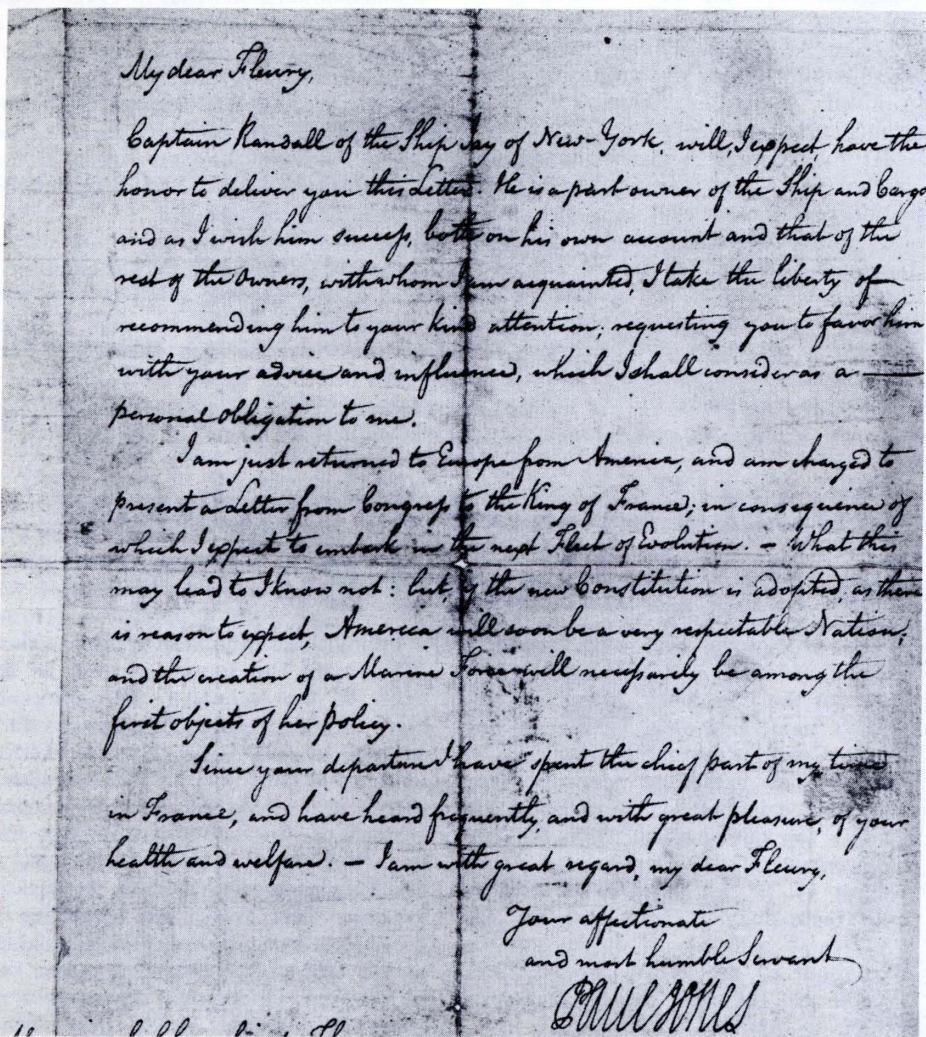 My dear Fleury,
Captain Randall of the Ship Jay of New-York, will, I expect, have the
honor to deliver you this Letter. He is a part owner of the Ship and Cargo
and as I wish him success, both on his own account and that of the
rest of the Owners, with whom I am acquainted, I take the liberty of
recommending him to your kind attention; requesting you to favor him
with your advice and influence, which I shall consider as a
personal obligation to me.
I am just returned to Europe from America, and am charged to
present a Letter from Congress to the King of France; in consequence of
which I expect to embark in the next Fleet of Evolution. – What this
may lead to I know not: but, if the new Constitution is adopted, as there
is reason to expect, America will soon be a very respectable Nation;
and the creation of a Marine Force will necessarily be among the
first objects of her policy.
Since your departure I have spent the chief part of my time
in France, and have heard frequently, and with great pleasure, of your
health and welfare. – I am with great regard, my dear Fleury,
Your affectionate
and most humble Servant
Paul Jones